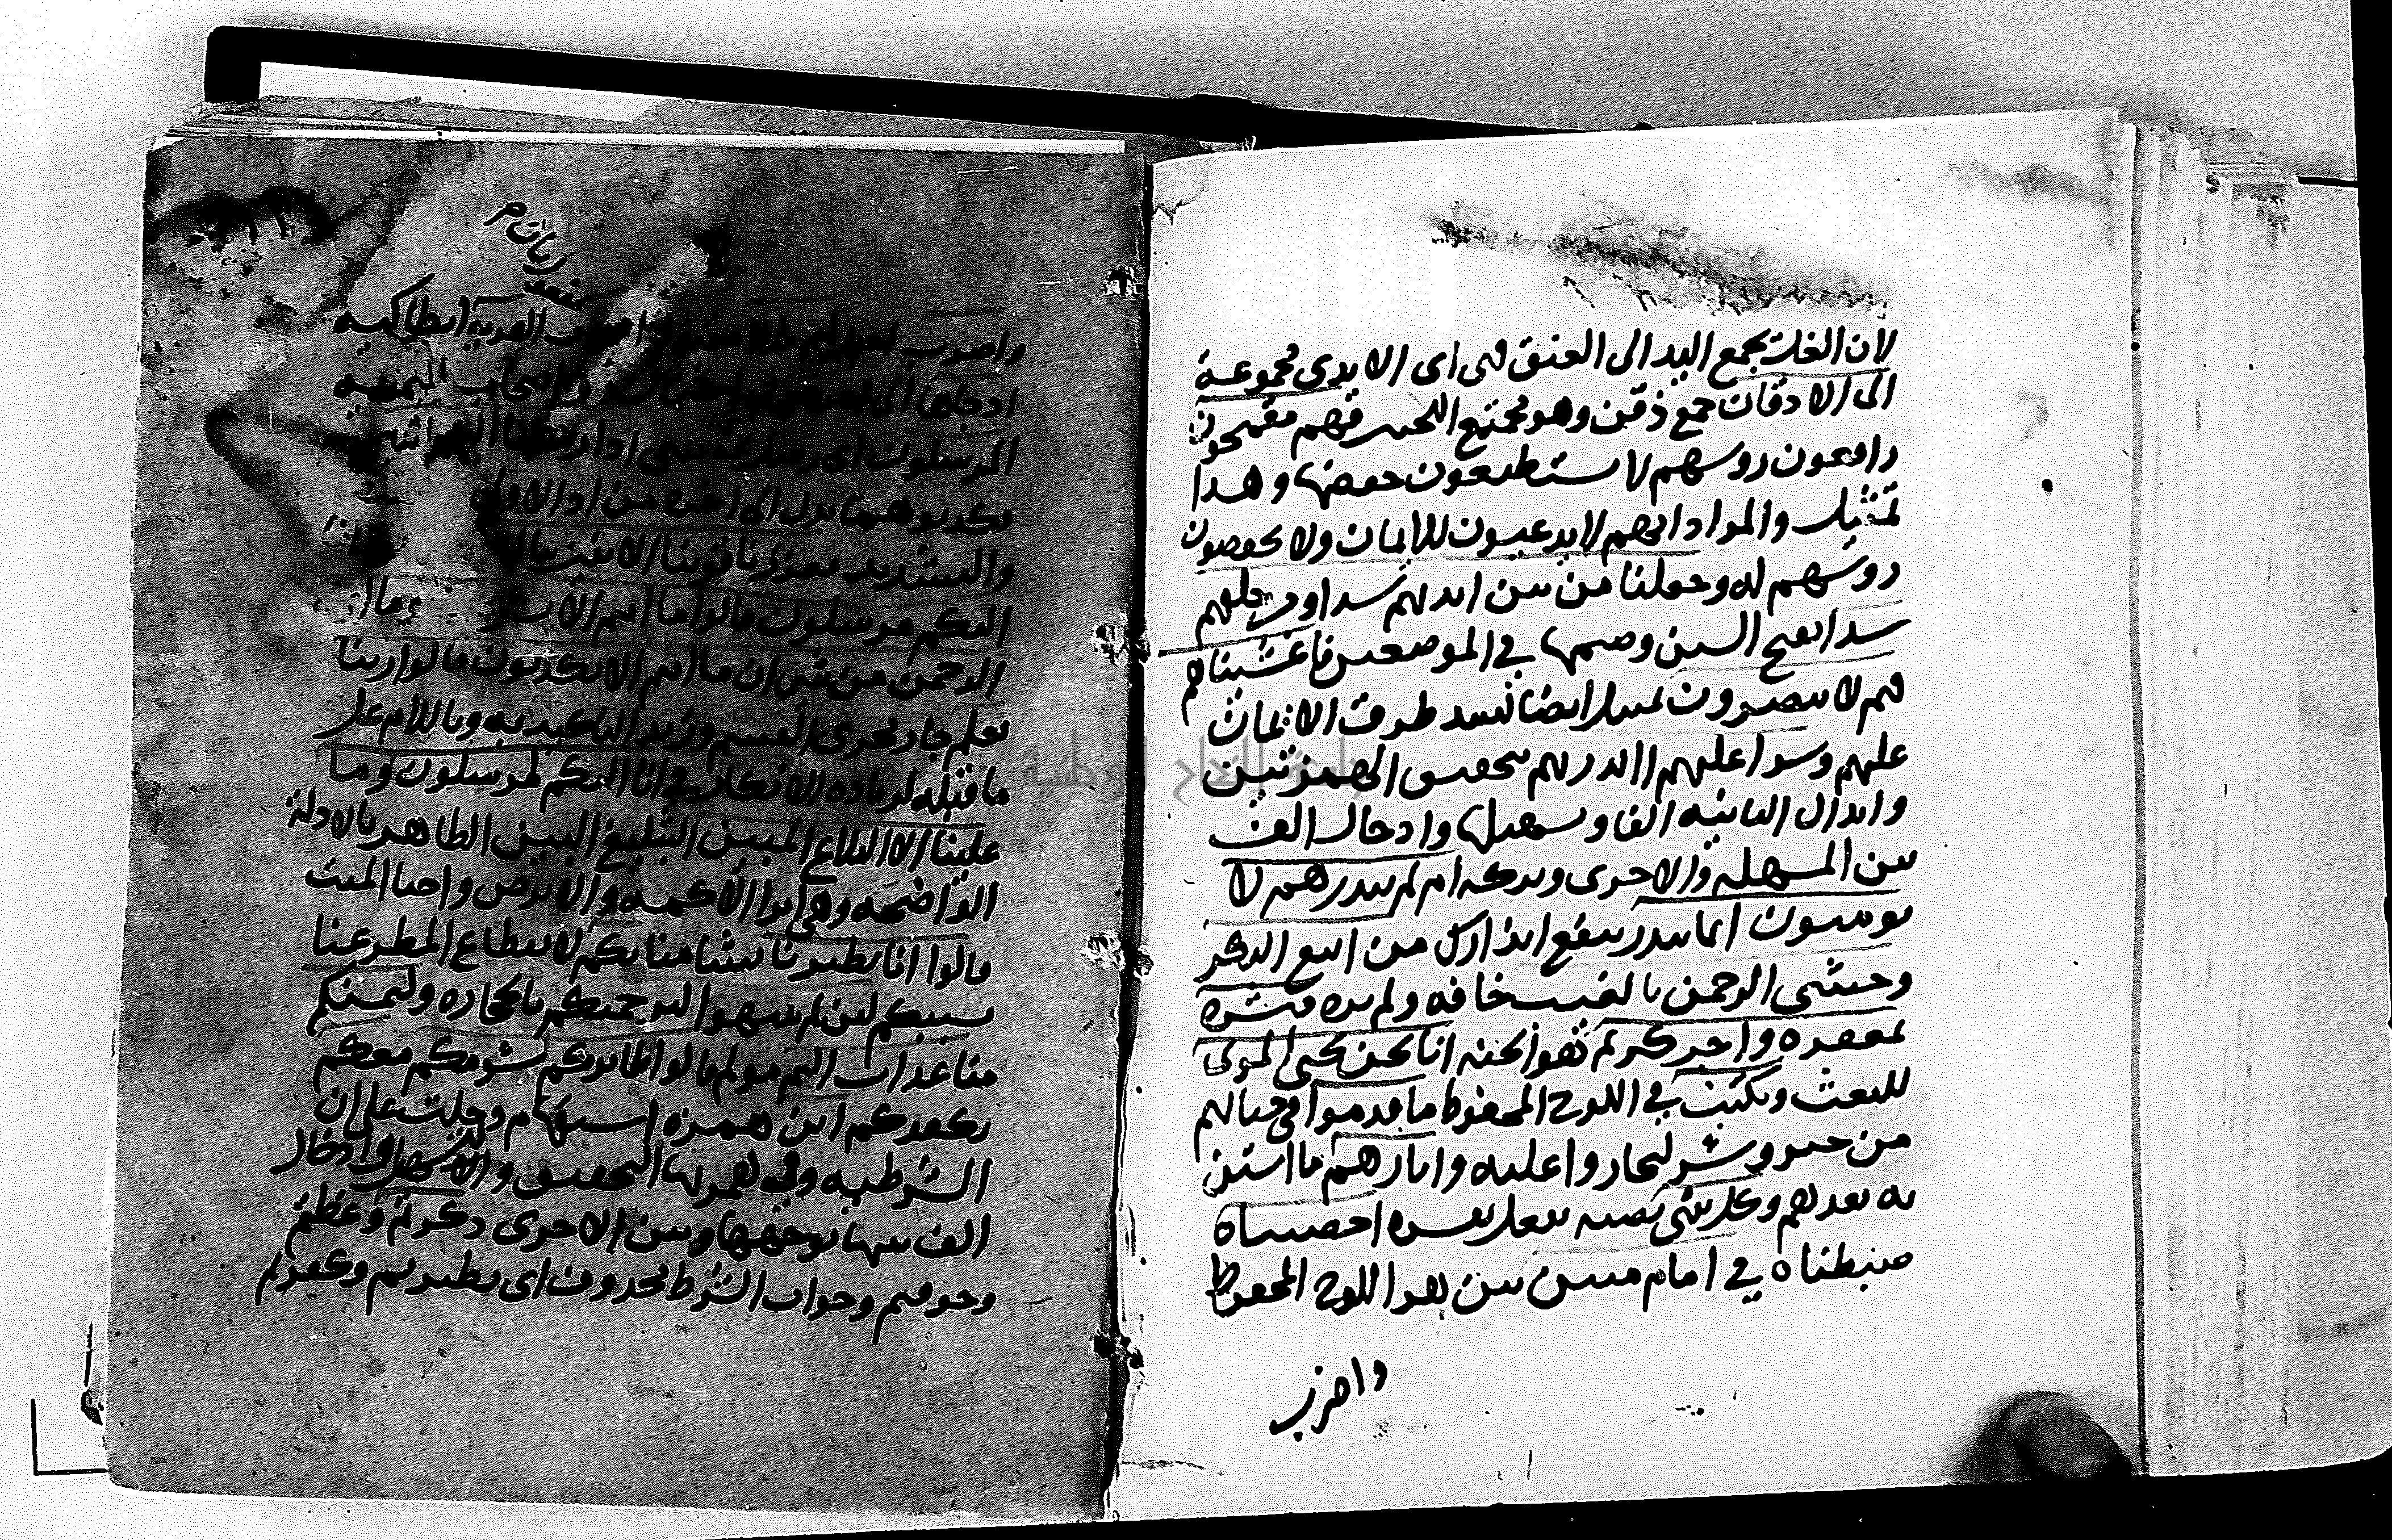 لان الغلّ يجمع اليد الى العنق فهى اى الايدى مجموعة
الى الاذقان جمع ذقن وهو مجتمع اللحيين فهم مقمحون
رافعون روسهم لا يستطيعون خفضها وهذا
تمثيل والمراد انهم لا يذعنون للايمان ولا يخفضون
روسهم له وجعلنا من بين ايديهم سدا ومن خلفهم
سدا بفتح السين وضمها في الموضعين فاغشيناهم
فهم لا يبصرون تمثيل ايضا لسد طرق الايمان
عليهم وسوا عليهم أانذرتهم بتحقيق الهمزتين
وابدال الثانيه الفا وتسهيلها وادخال الف
بين المسهله والاخرى وتركه ام لم تنذرهم لا
يومنون انما تنذر ينفع انذارك من اتبع الذكر
وخشى الرحمن بالغيب خافه ولم يره فبشره
بمغفره واجر كريم هو الجنه انا نحن نحى الموتى
للبعث ونكتب في اللوح المحفوظ ما قدموا في حياتهم
من خير وشر ليجازوا عليه واثارهم ما استن
به بعدهم وكل شى نصبه بفعل يفسره احصيناه
ضبطناه في امام مبين بين هو اللوح المحفوظ
واضرب
واضرب اصحاب القريه انطاكيه
المرسلون اى رسل عيسى اذ ارسلنا اليهم اثنين
فكذبوهما بدل الى اخره من اذ الاولى
والتشديد فعززنا قوينا الاثنين
اليكم مرسلون قالوا ما انتم الا بشر وما
الرحمن من شى ان ما انتم الا تكذبون قالوا ربنا
يعلم جار مجرى القسم وزيد التاكيد به وباللام على
ما قبله لزياده الانكار في انا اليكم لمرسلون وما
علينا الا البلاغ المبين التبليغ البين الظاهر بالادلة
الواضحه وهى ابرا الاكمه والابرص واحيا الميت
قالوا انا تطيرنا تشامنا بكم لانقطاع المطر عنا
بسببكم لين لم تنتهوا لنرجمنكم بالحجاره وليمسنكم
منا عذاب اليم مولم قالوا طائركم شومكم معكم
بكفركم اين همزه استفهام دخلت على ان
الشرطيه وفي همزتها التحقيق والتسهيل وادخال
الف بينها بوجهيها وبين الاخرى ذكرتم وعظتم
وخوفتم وجواب الشرط محذوف اى تطيرتم وكفرتم